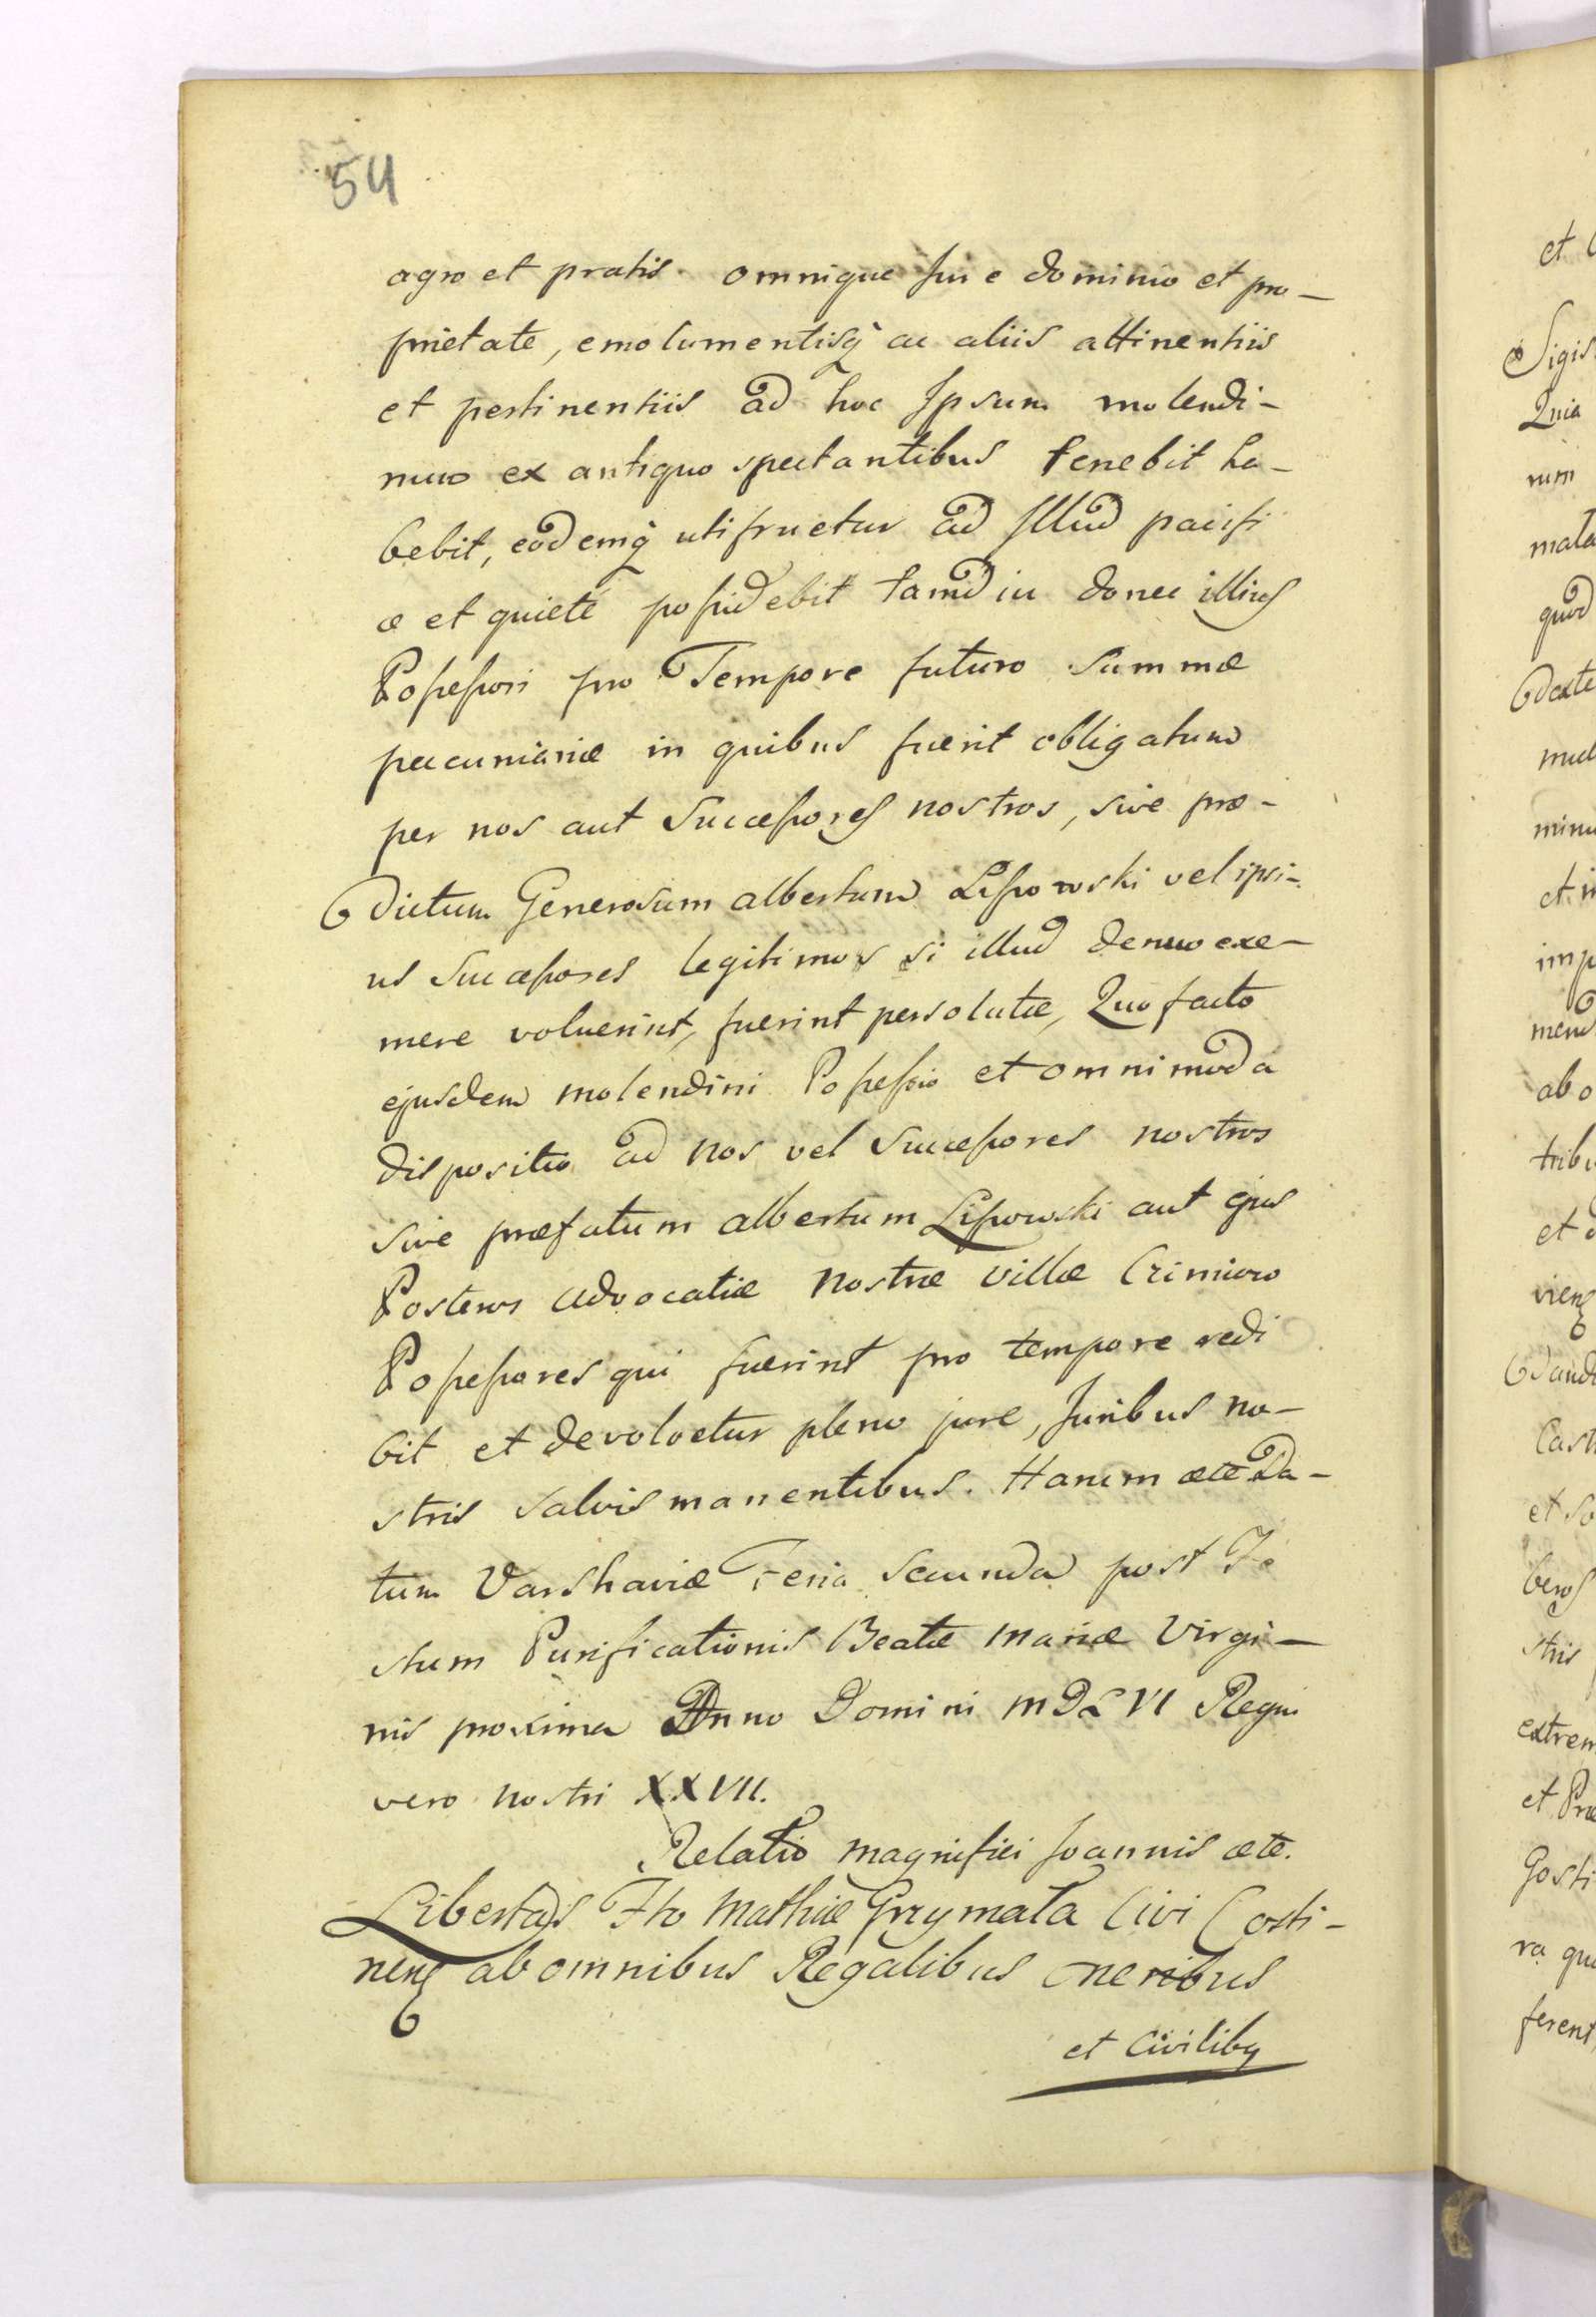 54
agro et pratis omnique Jure dominio et pro-
prietate, emolumentisq̀ ac aliis attinentiis
et pertinentiis ad hoc Ipsum molendi-
num ex antiquo spectantibus tenebit ha-
bebit, eodemq̀ utifruetur ad Illud pacifi
ce et quietè possidebit tamdiu donec illius
Possessori pro Tempore futuro Summæ
pecuniariæ in quibus fuerit obligatum
per nos aut Successores nostros, sive præ-
dictum Generosum albertum Lipowski vel ipsi-
us Successores legitimos si illud denuo exe-
mere voluerint, fuerint persolutæ, Quo facto
ejusdem molendini Possessio et omnimoda
dispositio ad nos vel Successores nostros
sive præfatum albertum Lipowski aut ejus
Posteros advocatiæ nostræ villæ Crimiwo
Possessores qui fuerint pro tempore redi
bit et devolvetur pleno jure, Juribus no-
stris salvis manentibus. Harum ætc Da-
tum Varshaviæ Feria Secunda post Fe
stum Purificationis Beatæ Mariæ Virgi-
nis proxima Anno Domini MDLVI Regni
vero nostri XXVII.
Relatio magnifici Joannis ætc.
Libertas Fto Mathiæ Grzymata Civi Costi-
nenꝭ ab omnibus Regalibus oneribus
et Civilibꝫ
et
Sigis
Quia
rum
mata
quod
dexte
mud
minu
et in
imp
mend
ab o
tribu
et
vienꝭ
dand
Cast
et So
beros
stris
extrem
et Præ
Gosti
ra qu
ferent